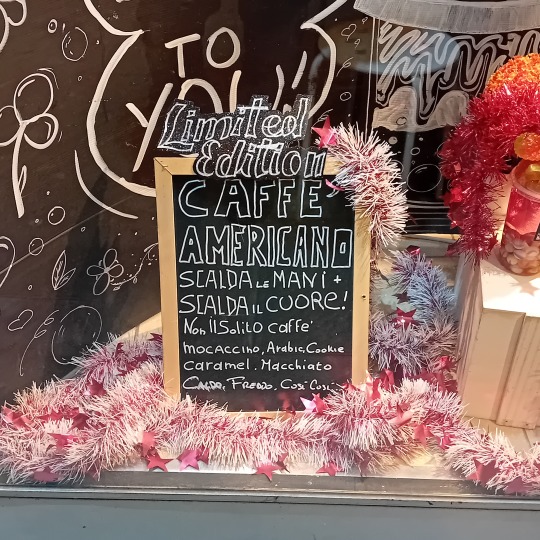 TO
YOU"
Limited
Edition
CAFFE'
AMERICANO
SCALDA LE MANI +
SCALDA IL CUORE!
Non Il Solito caffe'
mocaccino, Arabic, Cookie
caramel. Macchiato
CALDO, FREDDO, Così Così